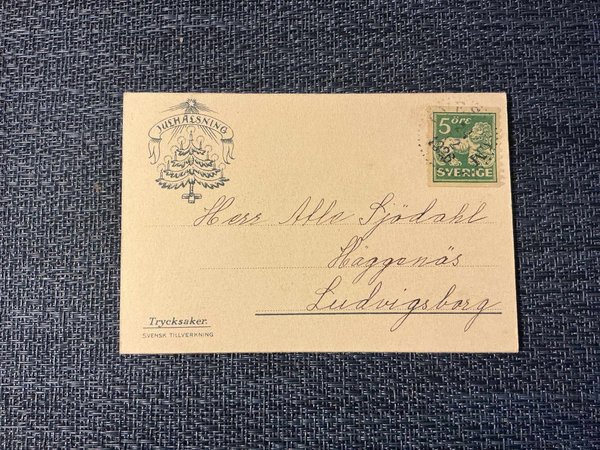 JULHÄLSNING
5 ÖRE
SVERIGE
Herr Alle Sjödahl
Häggenäs
Ludvigsborg
Trycksaker.
SVENSK TILLVERKNING